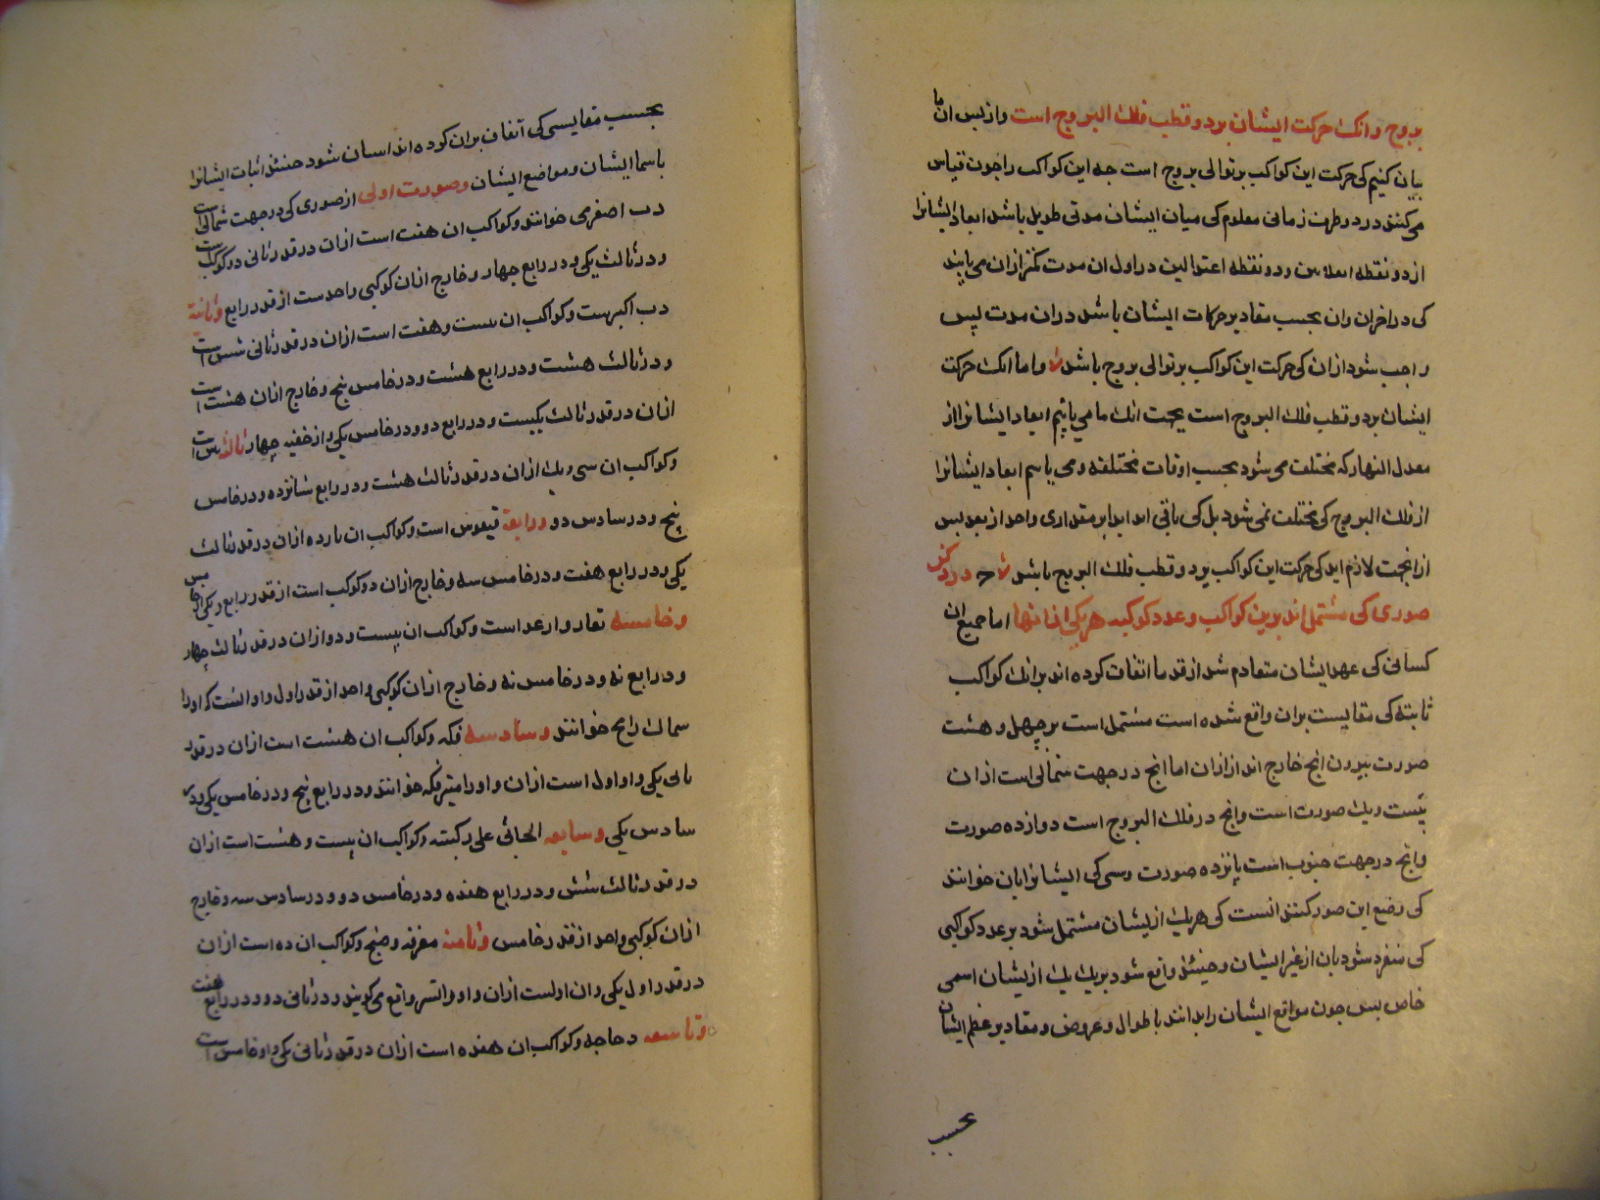 بروج وانك حركت ايشان بر دو قطب فلك البروج است واز بس ان ما
بيان كنيم كى حركت اين كواكب بر توالى بروج است جه اين كواكب را جون قياس
مى كنند در دو طرف زمانى معلوم كى ميان ايشان مدتى طويل باشد ابعاد ايشانرا
از دو نقطه انقلابين ودو نقطه اعتدالين در اول ان مدت كمتر ازان مى يابند
كى در اخر ان وان بحسب مقادير حركات ايشان باشد دران مدت بس
واجب شود ازان كى حركت اين كواكب بر توالى بروج باشد واما انك حركت
ايشان بر دو قطب فلك البروج است بجهت انك ما مى يابيم ابعاد ايشانرا از
معدل النهار كه مختلف مى شود بحسب اوقات مختلفه ومى يابيم ابعاد ايشانرا
از فلك البروج كى مختلف نمى شود بل كى باقى اند ابدا بر مقدارى واحد از بعد بس
ازين جهت لازم ايد كى حركت اين كواكب بر دو قطب فلك البروج باشد در ذكر
صورى كى مشتمل اند برين كواكب وعدد كوكبه هر يكى ازانها اما جميع ان
كسانى كى عهد ايشان متقادم شد از قدما اتفاق كرده اند برانك كواكب
ثابته كى مقايست بران واقع شده است مشتمل است بر چهل و هشت
صورت بيرون انج خارج اند ازان اما انج در جهت شمالى است ازان
بيست ويك صورت است وانج در فلك البروج است دوازده صورت
وانج در جهت جنوب است پانزده صورت وسمى كى ايشانرا بان خوانند
كى وضع اين صور كنند انست كى هر يك از يشان مشتمل شود بر عدد كواكبى
كى منفرد شود بان از غير ايشان وحينئذ واقع شود بر يك يك از يشان اسمى
خاص بس جون مواقع ايشان را بدانند باطوال وعروض ومقادير عظم ايشان
بحسب
بحسب مقايسى كى اتفاق بران كرده اند اسان شود حينئذ اثبات ايشانرا
باسما ايشان ومواضع ايشان وصورت اولى از صورى كى در جهت شمالى است
دب اصغر مى خوانند وكواكب ان هفت است ازان در قدر ثانى دو كوكب است
ودر ثالث يكى ودر رابع چهار وخارج ازان كوكبى واحدست از قدر رابع وثانية
دب اكبرست وكواكب ان بيست وهفت است ازان در قدر ثانى شش است
ودر ثالث هشت ودر رابع هشت ودر خامس پنج وخارج ازان هشت است
ازان در قدر ثالث يكيست ودر رابع دو ودر خامس يكى واز خفيه چهار ثالثه تنين است
وكواكب ان سى ويك ازان در قدر ثالث هشت ودر رابع شانزده ودر خامس
پنج ودر سادس دو ورابعة قيفوس است وكواكب ان يازده ازان در قدر ثالث
يكى ودر رابع هفت ودر خامس سه وخارج ازان دو كوكب است از قدر رابع ويكى از خامس
وخامسه بقار وارعد است وكواكب ان بيست ودو ازان در قدر ثالث چهار
ودر رابع نه ودر خامس نه وخارج ازان كوكبى واحد از قدر اول واو انست كه اورا
سماك رامح خوانند وسادسه فكه وكواكب ان هشت است ازان در قدر
ثانى يكى واو اول است ازان واورا منير فكه خوانند ودر رابع پنج ودر خامس يكى ودر
سادس يكى وسابعه الجاثى على ركبته وكواكب ان بيست و هشت است ازان
در قدر ثالث شش ودر رابع هفده ودر خامس دو ودر سادس سه وخارج
ازان كوكبى واحد از قدر خامس وثامنه معرفه وصنج وكواكب ان ده است ازان
در قدر اول يكى وان اولست ازان واو را نسر واقع مى گويند ودر ثانى دو ودر رابع هفت
وتاسعه دجاجه وكواكب ان هفده است ازان در قدر ثانى يكى واو خامس است